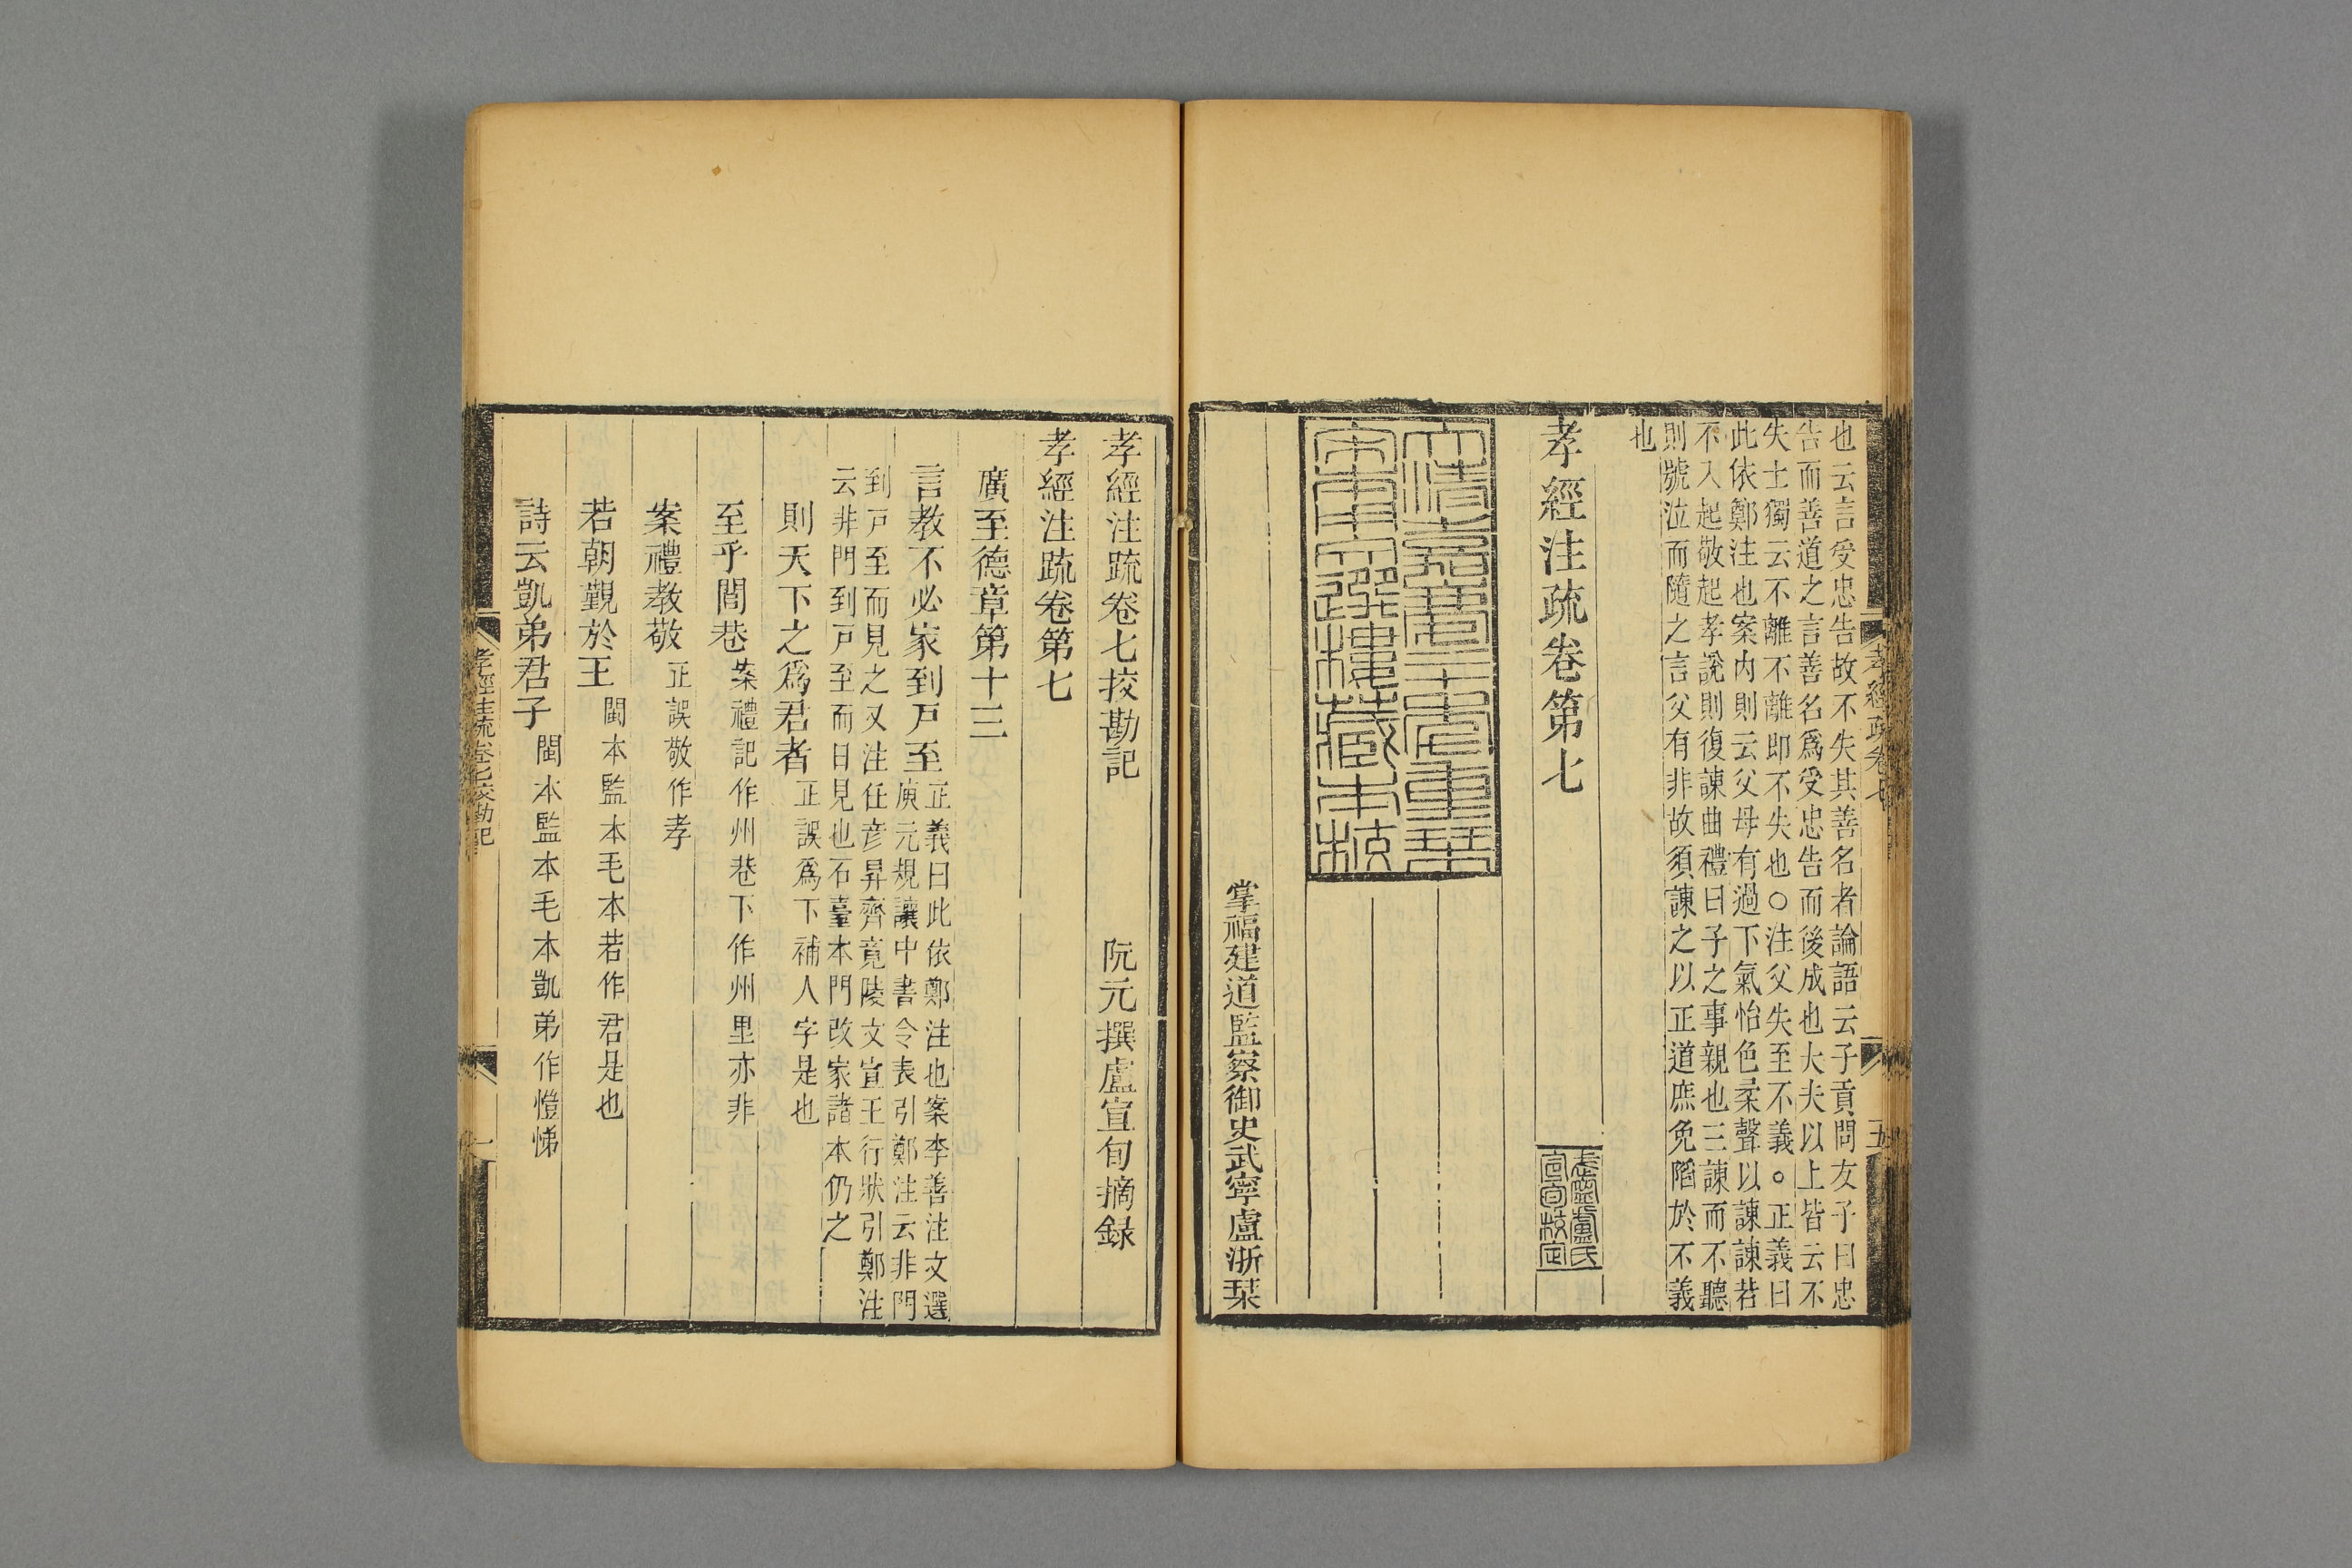 孝經疏卷七　五
也云言受忠告故不失其善名者論語云子貢問友子曰忠
告而善道之言善名爲受忠告而後成也大夫以上皆云不
失士獨云不離不離即不失也○注父失至不義○正義曰
此依鄭注也案内則云父母有過下氣怡色柔聲以諫諫若
不入起敬起孝說則復諫曲禮曰子之事親也三諫而不聽
則號泣而隨之言父有非故須諫之以正道庶免陷於不義
也
孝經注疏卷第七
武寧盧氏
宣旬校定
大清嘉慶二十年重栞
宋本用文選樓藏本校
掌福建道監察御史武寧盧浙栞
孝經注疏卷七挍勘記　阮元撰盧宣旬摘録
孝經注疏卷第七
廣至德章第十三
言教不必家到戸至　正義曰此依鄭注也案李善注文選
庾元規讓中書令表引鄭注云非門
到戸至而見之又注任彦昇齊竟陵文宣王行狀引鄭注
云非門到戸至而日見也石臺本門改家諸本仍之
則天下之爲君者　正誤爲下補人字是也
至乎閭巷　案禮記作州巷下作州里亦非
案禮教敬　正誤敬作孝
若朝覲於王　閩本監本毛本若作君是也
詩云凱弟君子　閩本監本毛本凱弟作愷悌
孝經注疏卷七挍勘記　一